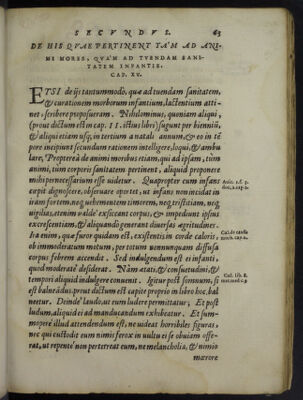 SECVNDVS. 63
DE HIS QVAE PERTINENT TAM AD ANI-
MI MORES, QVAM AD TVENDAM SANI-
TATEM INFANTIS.
CAP. XV.
ETSI de ijs tantummodo, quæ ad tuendam sanitatem,
& curationem morborum infantium, lactentium atti
net, scribere proposueram. Nihilominus, quoniam aliqui,
(prout dictum est in cap. II. istius libri) sugunt per biennium,
& aliqui etiam usq; in tertium a natali annum, & eo in tē
pore incipiunt secundum rationem intelligere, loqui, & ambu
lare, Propterea de animi moribus etiam, qui ad ipsam, tum
animi, tum corporis sanitatem pertinent, aliquid proponere
mihi pernecessarium esse uidetur. Quapropter cum infans
capit dignoscere, obseruare oportet, ut infans non incidat in
iram fortem, neq; uehementem timorem, neq; tristitiam, neq;
uigilias, etenim ualde exsiccant corpus, & impediunt ipsius
excrescentiam, & aliquando generant diuersas ægritudines.
Ira enim, quæ furor quidam est, existens in corde caloris,
ob immoderatum motum, per totum nonnunquam diffusa
corpus febrem accendit. Sed indulgendum est ei infanti,
quod moderate desiderat. Nam ætati, & consuetudini, &
tempori aliquid indulgere conuenit. Igitur post somnum, si
est balneādus, prout dictum est capite proprio in libro hoc, bal
neetur. Deinde laudo, ut cum ludere permittatur; Et post
ludum, aliquid ei ad manducandum exhibeatur. Et sum-
mopere illud attendendum est, ne uideat horribiles figuras,
nec qui custodit eum nimis ferox in uultu ei se obuiam offe-
rat, ut repente non perterreat eum, ne melancholia, & nimio
mærore